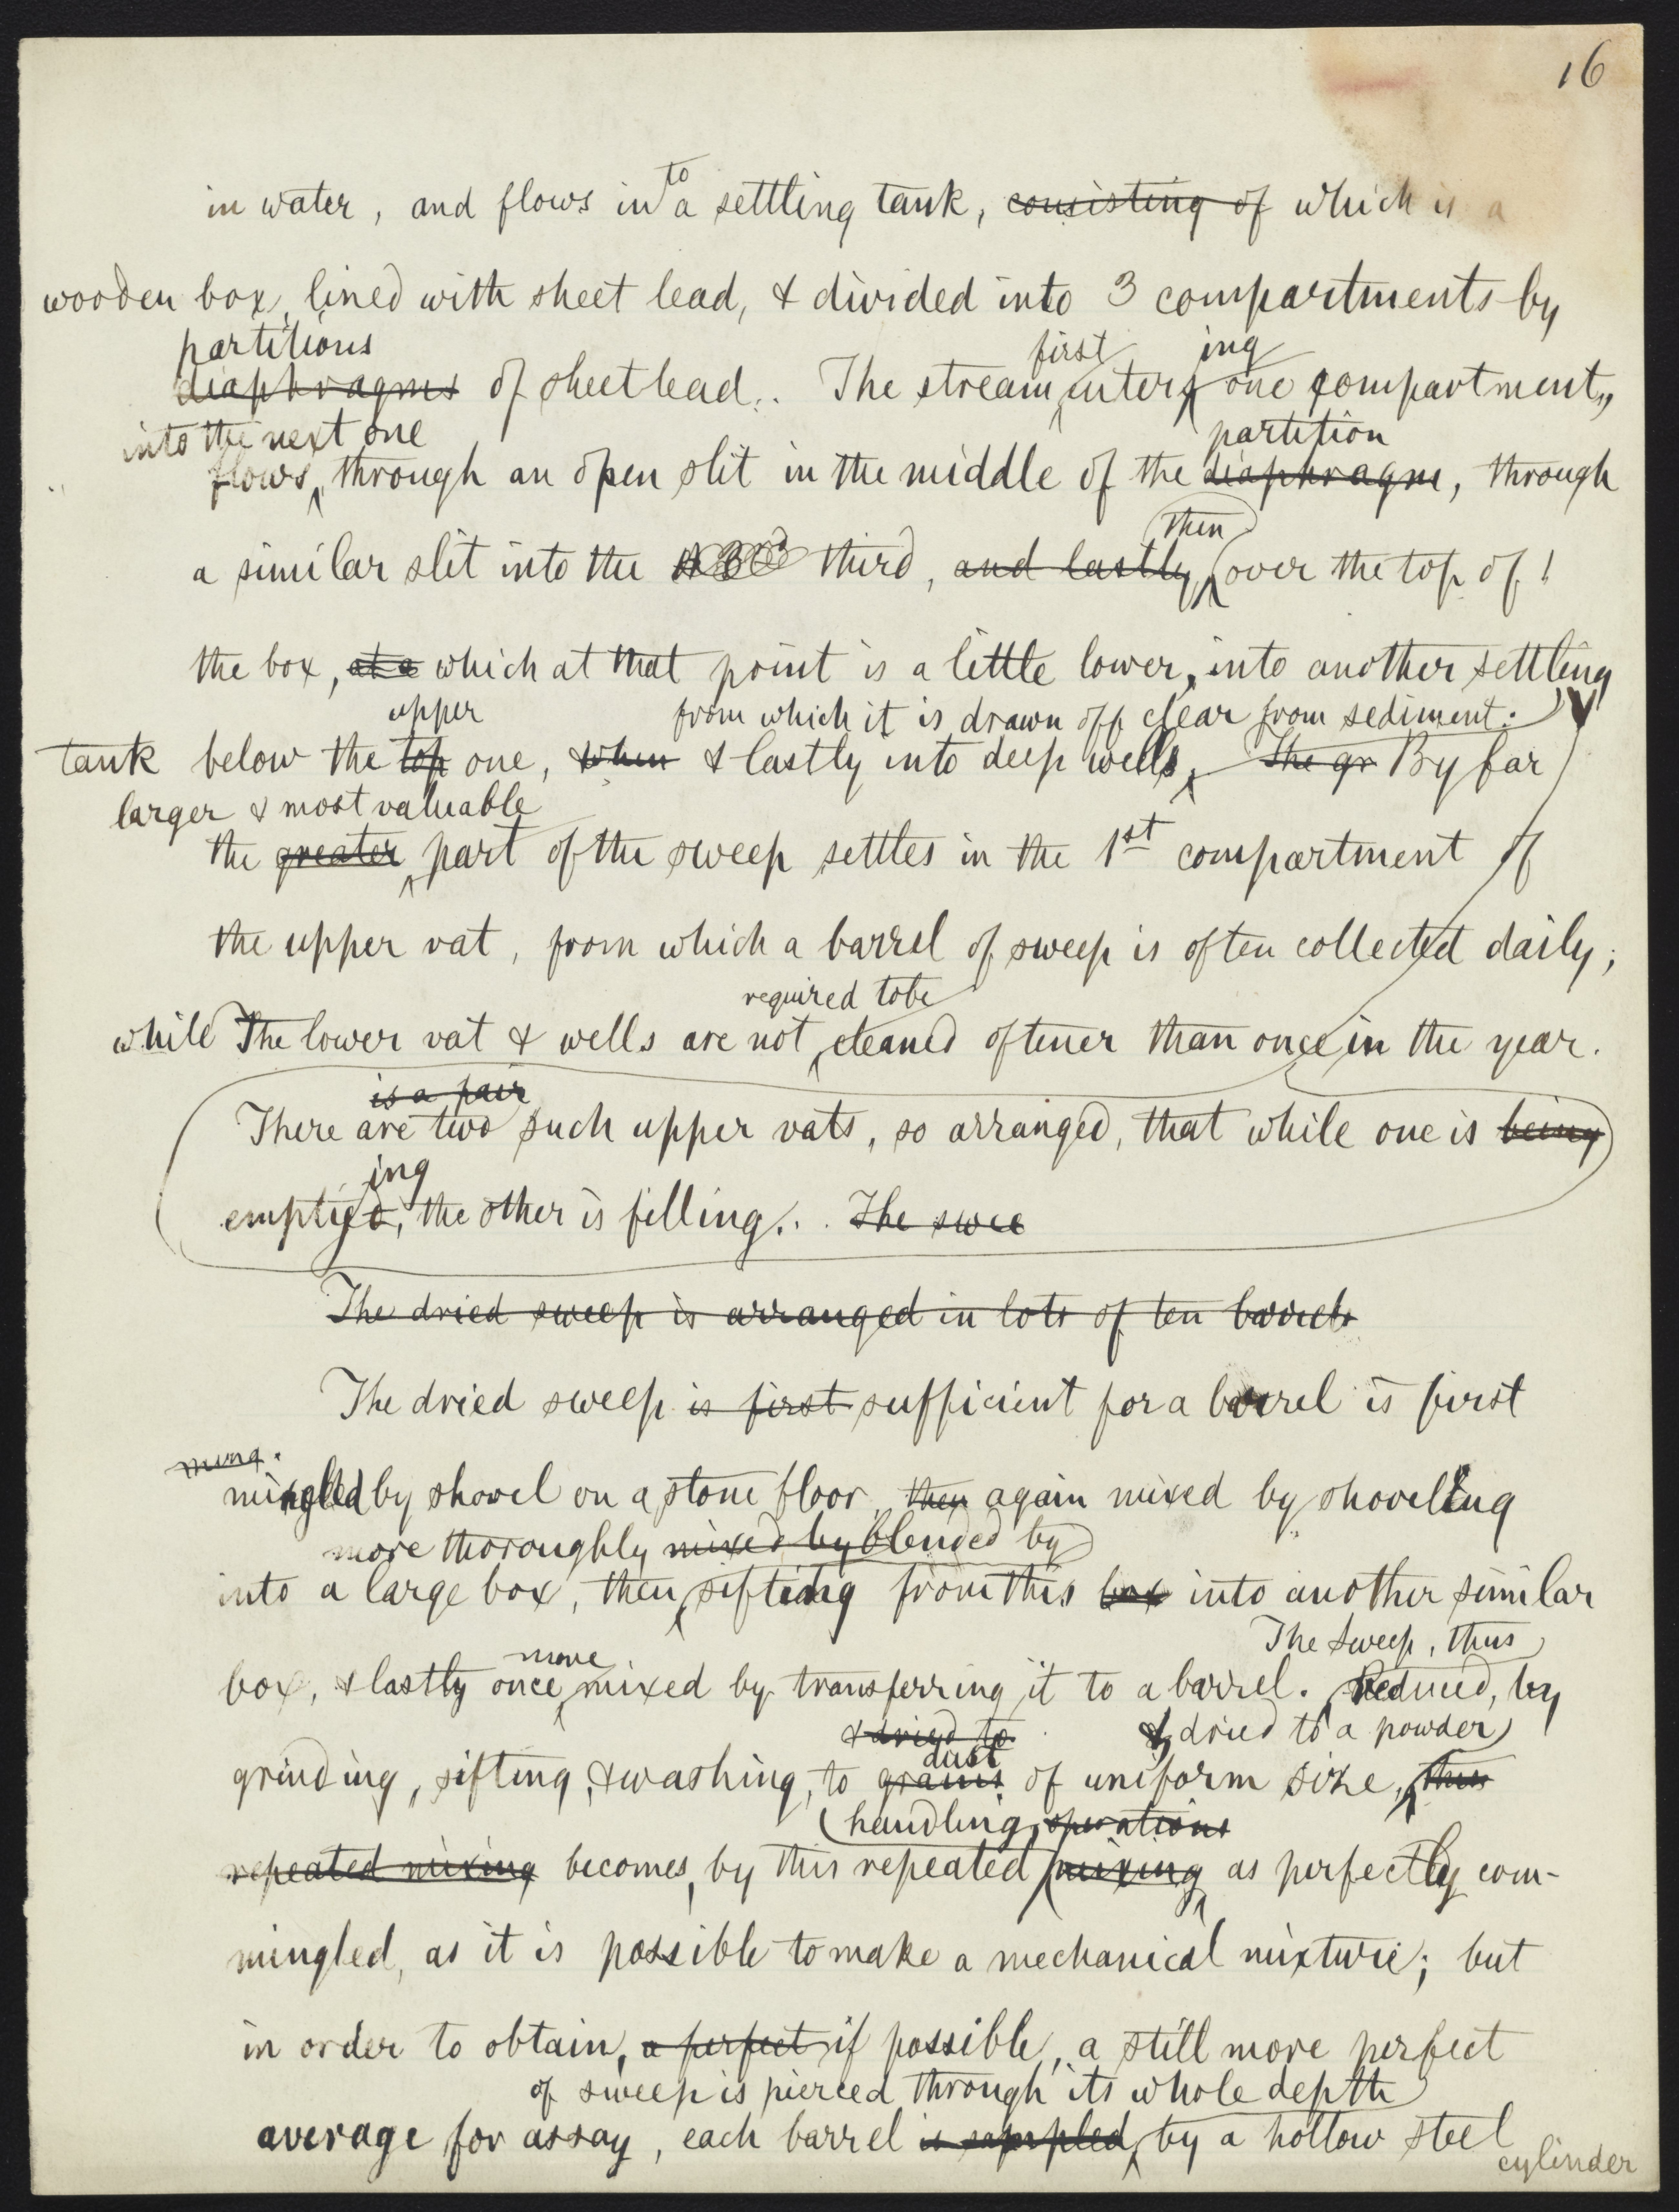 16
in water, and flows into a settling tank, consisting of which is a
wooden box, lined with sheet lead, & divided into 3 compartments by
partitions
diaphragms of sheet lead. The stream first entering one compartment,
into the next one partition
flows through an open slit in the middle of the diaphragm, through
then
a similar slit into the third, and lastly over the top of
the box, at a which at that point is a little lower, into another settling
upper from which it is drawn off clear from sediment.
tank below the top one, when & lastly into deep wells, The gr By far
larger & most valuable
the greater part of the sweep settles in the 1st compartment of
the upper vat, from which a barrel of sweep is often collected daily;
required to be
while The lower vat & wells are not cleaned oftener than once in the year.
is a pair
There are two such upper vats, so arranged, that while one is being
ing
emptied, the other is filling. The swee
The dried sweep is arranged in lots of ten barrels
The dried sweep is first sufficient for a barrel is first
ming
mingled by shovel on a stone floor, then again mixed by shovelling
more thoroughly mixed by blended by
into a large box, then sifting from this box into another similar
more The sweep, thus
box, & lastly once mixed by transferring it to a barrel. Reduced, by
& dried to & dried to a powder
dust
grinding, sifting, & washing, to grains of uniform size, thus
handling, operations
repeated mixing becomes, by this repeated mixing as perfectly com-
mingled, as it is possible to make a mechanical mixture; but
in order to obtain, a perfect if possible, a still more perfect
of sweep is pierced through its whole depth
average for assay, each barrel is sampled by a hollow steel
cylinder